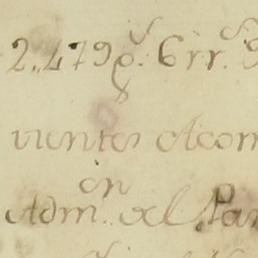 2„479 p.s 6 rr.s
vientes Acom
en
Adm. del Par